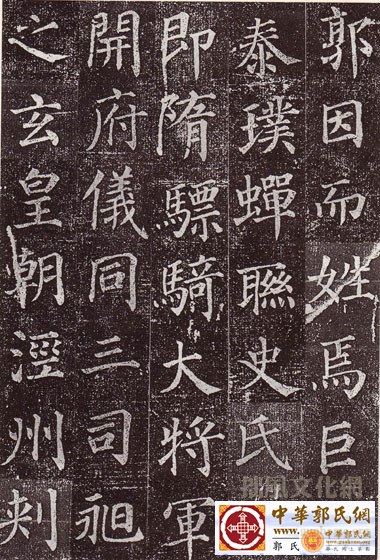 郭因而姓焉巨
泰璞蟬聯史氏
即隋驃騎大將軍
開府儀同三司
之玄皇朝涇州刾
文化網
中華郭氏網
www.
郭氏